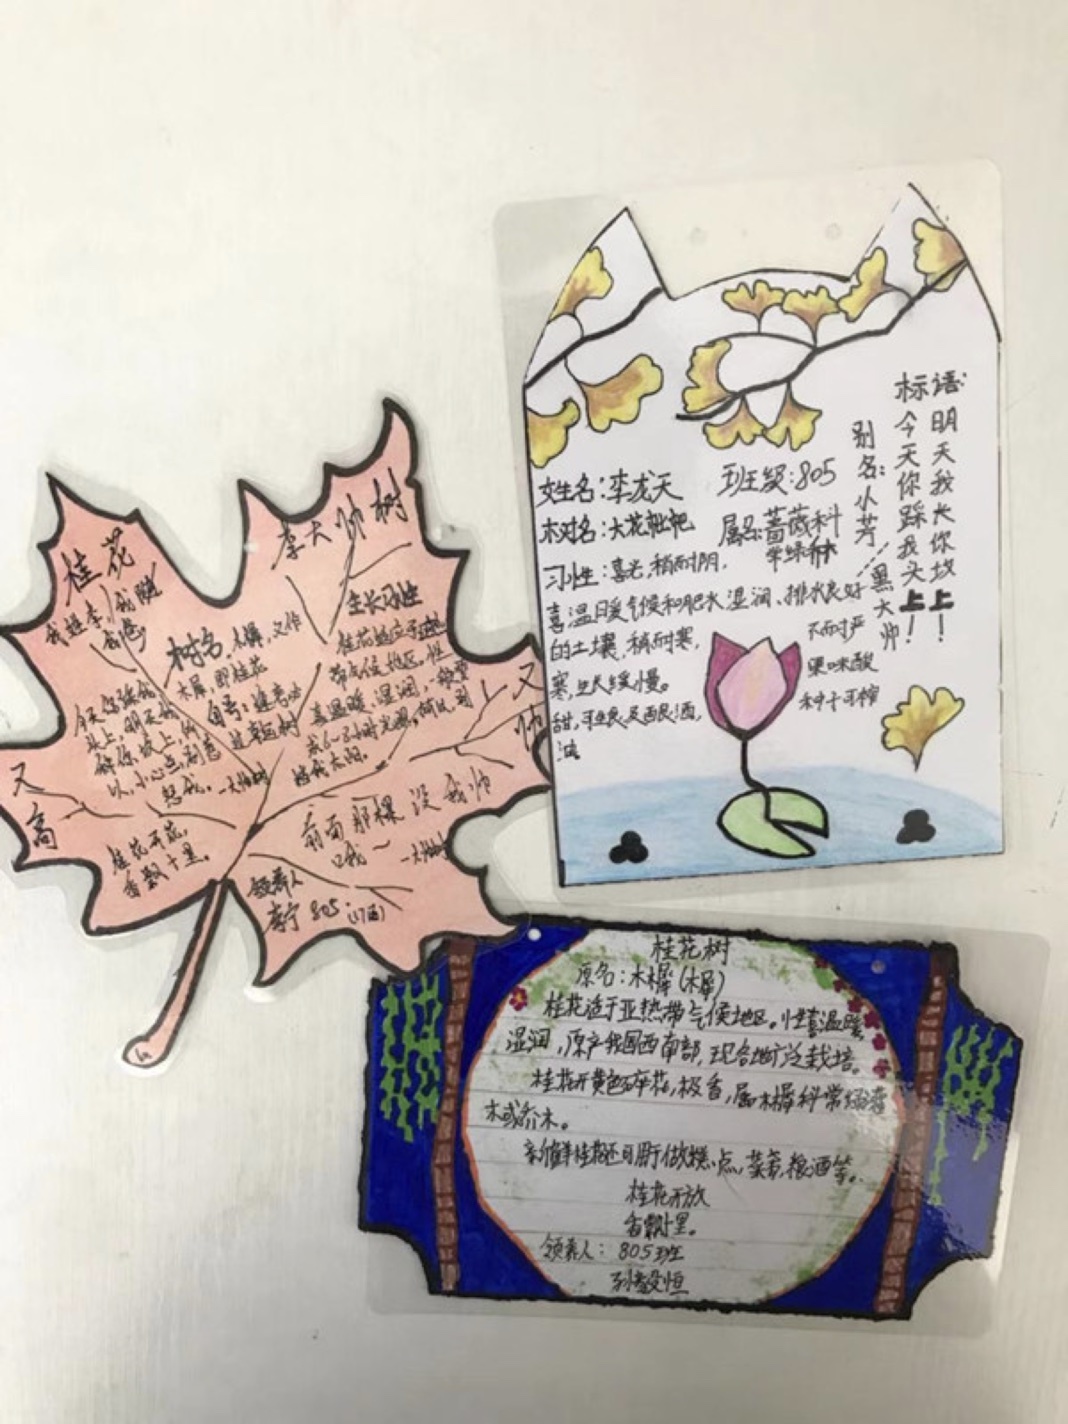 桂花
李大帅树
树名:木樨,又作
木犀,即桂花
生长习性
桂花适应于亚热
带气候地区,性
喜温暖、湿润,
今天你踩我
头上,明天我
长你坟上,所
以,小心点,别惹
怒我。
桂花开花,
香飘十里。
又高
又帅
前面那棵没我帅
哦~
领养人
李宁 805
姓名:李龙天
班级:805
树名:大花枇杷
属名:蔷薇科
常绿乔木
习性:喜光,稍耐阴,
喜温暖气候和肥水湿润、排水良好
的土壤,稍耐寒,
不耐严
寒,生长缓慢。
果味酸
甜,可生食及酿酒,
种子可榨
油
别名:小芳
黑大帅
标语:
今天你踩我头上!
明天我长你坟上!
桂花树
原名:木樨(木犀)
桂花适于亚热带气候地区。性喜温暖,
湿润,原产我国西南部,现各地广泛栽培。
桂花开黄色碎花,极香,属木樨科常绿灌
木或乔木。
新鲜桂花还可用于做糕点,菜肴,粮酒等。
桂花开放
香飘十里。
领养人:805班